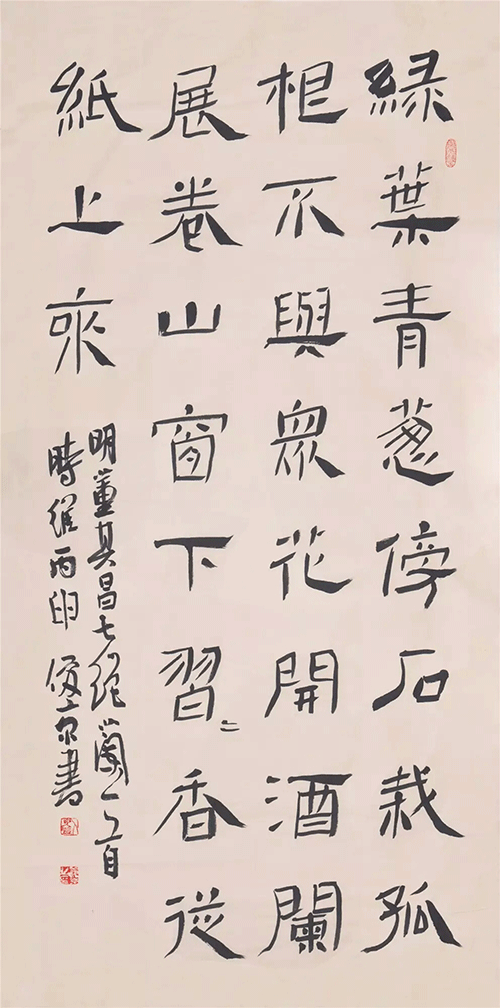 緑葉青葱傍石栽孤
根不與眾花開酒闌
展卷山窗下習〻香從
紙上來
明董其昌七絕蘭一首
時維丙 書